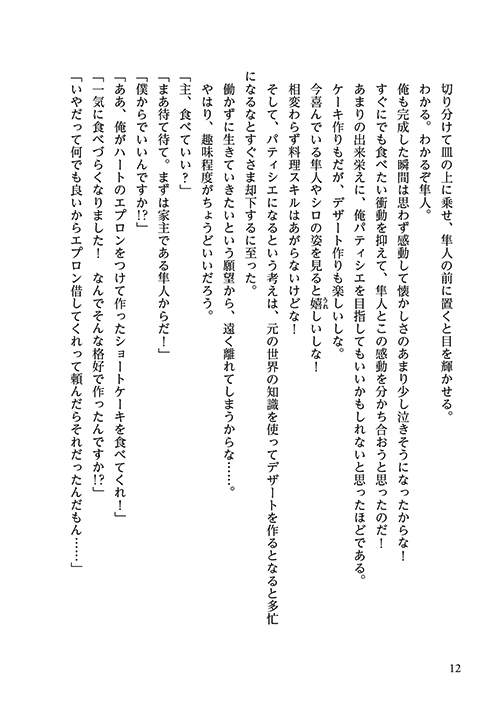 切り分けて皿の上に乗せ、隼人の前に置くと目を輝かせる。
わかる。わかるぞ隼人。
俺も完成した瞬間は思わず感動して懐かしさのあまり少し泣きそうになったからな！
すぐにでも食べたい衝動を抑えて、隼人とこの感動を分かち合おうと思ったのだ！
あまりの出来栄えに、俺パティシエを目指してもいいかもしれないと思ったほどである。
ケーキ作りもだが、デザート作りも楽しいしな。
今喜んでいる隼人やシロの姿を見ると嬉しいしな！
相変わらず料理スキルはあがらないけどな！
そして、パティシエになるという考えは、元の世界の知識を使ってデザートを作るとなると多忙
になるなとすぐさま却下するに至った。
働かずに生きていきたいという願望から、遠く離れてしまうからな……。
やはり、趣味程度がちょうどいいだろう。
「主、食べていい？」
「まあ待て待て。まずは家主である隼人からだ！」
「僕からでいいんですか!?」
「ああ、俺がハートのエプロンをつけて作ったショートケーキを食べてくれ！」
「一気に食べづらくなりました！　なんでそんな格好で作ったんですか!?」
「いやだって何でも良いからエプロン借してくれって頼んだらそれだったんだもん……」
12